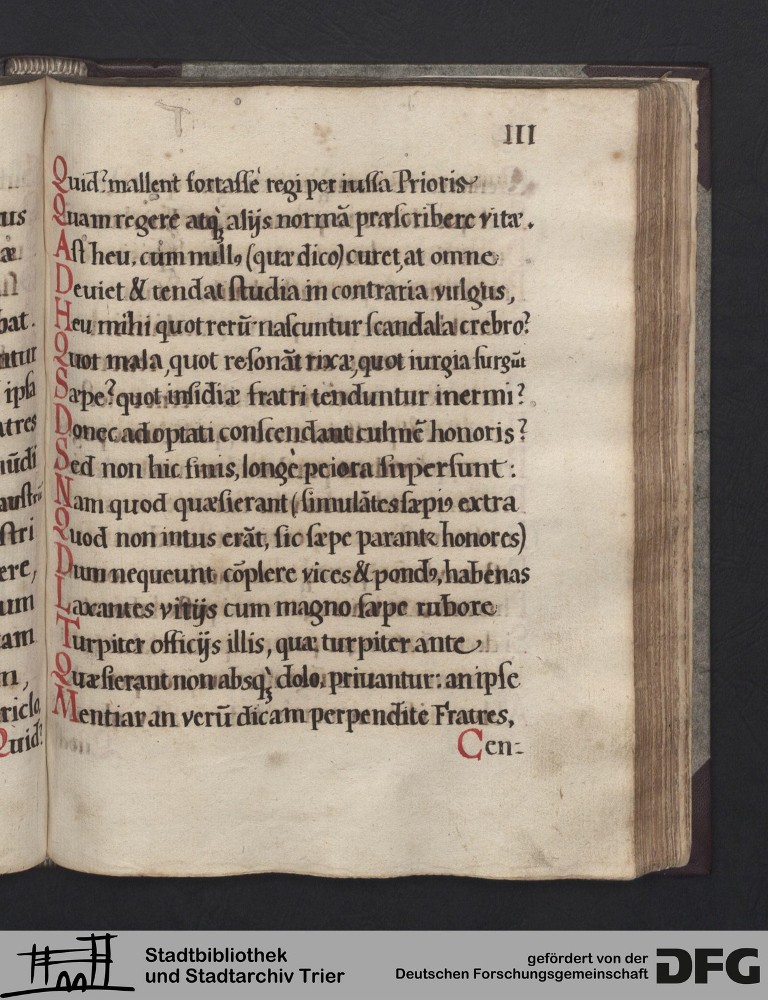 III
Quid? mallent fortasse regi per iussa Prioris
Quam regere atq; alijs normā præscribere vitæ.
Ast heu, cùm nullꝰ (quæ dico) curet, at omne
Deuiet & tendat studia in contraria vulgus,
Heu mihi quot rerū nascuntur scandala crebro?
Quot mala, quot resonāt rixæ, quot iurgia surgūt
Sæpe? quot insidiæ fratri tenduntur inermi?
Donec adoptati conscendant culmē honoris?
Sed non hic finis, longè peiora supersunt:
Nam quod quæsierant (simulātes sæpiꝰ extra
Quod non intus erāt, sic sæpe parant honores)
Dum nequeunt cōplere vices & pondꝰ, habenas
Laxantes vitijs cum magno sæpe rubore
Turpiter officijs illis, quæ turpiter ante
Quæsierant non absq; dolo, priuantur: an ipse
Mentiar an verū dicam perpendite Fratres,
Cen=
us
æ
bat.
atur
ipsa
atres
ūdi
austrū
stri
ere,
um
am
n,
riclo
Quid?
Stadtbibliothek
und Stadtarchiv Trier
gefördert von der
Deutschen Forschungsgemeinschaft
DFG